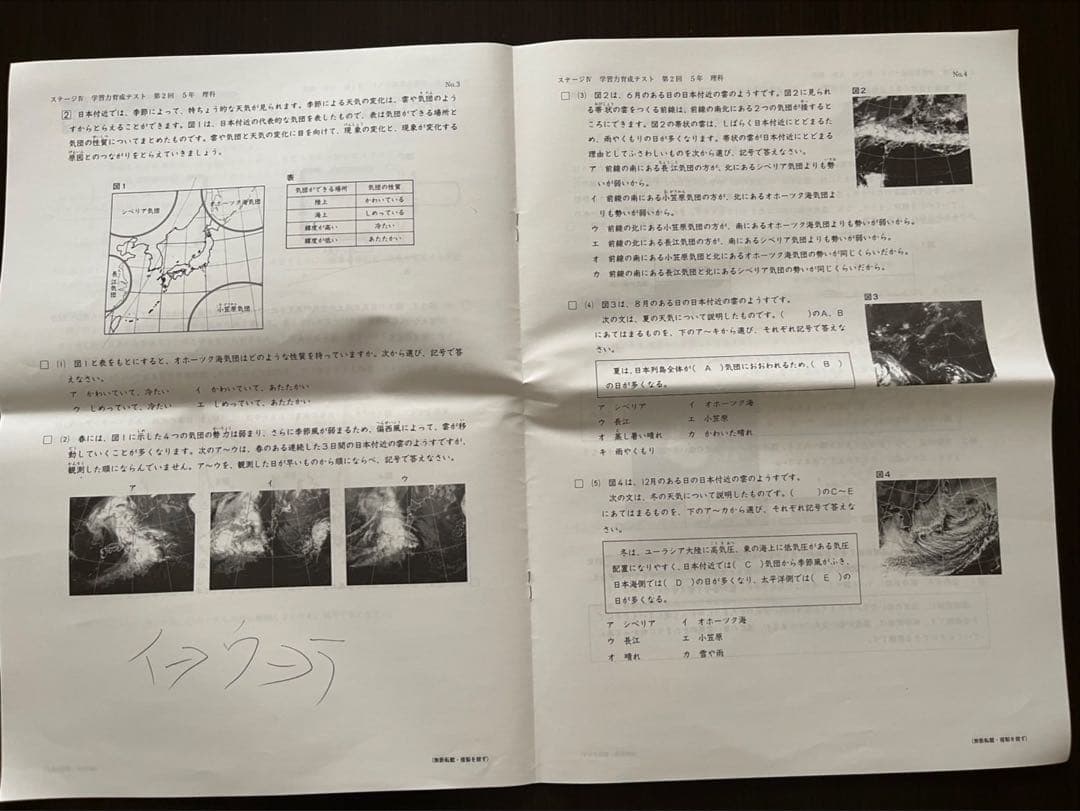 ステージⅣ 学習力育成テスト 第2回 5年 理科
No.3
2 日本付近では、季節によって、特ちょう的な天気が見られます。季節による天気の変化は、雲や気団のよう
すからとらえることができます。図1は、日本付近の代表的な気団を表したもので、表は気団ができる場所と
気団の性質についてまとめたものです。雲や気団と天気の変化に目を向けて、現象の変化と、現象が変化する
原因とのつながりをとらえていきましょう。
図1
シベリア気団
オホーツク海気団
長江気団
小笠原気団
表
気団ができる場所 気団の性質
陸上 かわいている
海上 しめっている
緯度が高い 冷たい
緯度が低い あたたかい
(1) 図1と表をもとにすると、オホーツク海気団はどのような性質を持っていますか。次から選び、記号で答
えなさい。
ア かわいていて、冷たい イ かわいていて、あたたかい
ウ しめっていて、冷たい エ しめっていて、あたたかい
(2) 春には、図1に示した4つの気団の勢力は弱まり、さらに季節風が弱まるため、偏西風によって、雲が移
動していくことが多くなります。次のア〜ウは、春のある連続した3日間の日本付近の雲のようすですが、
観測した順にならんでいません。ア〜ウを、観測した日が早いものから順にならべ、記号で答えなさい。
ア イ ウ
イ⇒ウ⇒ア
(無断転載・複製を禁ず)
ステージⅣ 学習力育成テスト 第2回 5年 理科
No.4
(3) 図2は、6月のある日の日本付近の雲のようすです。図2に見られ
る帯状の雲をつくる前線は、前線の南北にある2つの気団が接すると
ころにできます。図2の帯状の雲は、しばらく日本付近にとどまるた
め、雨やくもりの日が多くなります。帯状の雲が日本付近にとどまる
理由としてふさわしいものを次から選び、記号で答えなさい。
ア 前線の南にある長江気団の方が、北にあるシベリア気団よりも勢
いが弱いから。
イ 前線の南にある小笠原気団の方が、北にあるオホーツク海気団よ
りも勢いが弱いから。
ウ 前線の北にある小笠原気団の方が、南にあるオホーツク海気団よりも勢いが弱いから。
エ 前線の北にある長江気団の方が、南にあるシベリア気団よりも勢いが弱いから。
オ 前線の南にある小笠原気団と北にあるオホーツク海気団の勢いが同じくらいだから。
カ 前線の南にある長江気団と北にあるシベリア気団の勢いが同じくらいだから。
図2
(4) 図3は、8月のある日の日本付近の雲のようすです。
次の文は、夏の天気について説明したものです。( )のA、B
にあてはまるものを、下のア〜キから選び、それぞれ記号で答えな
さい。
図3
夏は、日本列島全体が( A )気団におおわれるため、( B )
の日が多くなる。
ア シベリア イ オホーツク海
ウ 長江 エ 小笠原
オ 蒸し暑い晴れ カ かわいた晴れ
キ 雨やくもり
(5) 図4は、12月のある日の日本付近の雲のようすです。
次の文は、冬の天気について説明したものです。( )のC〜E
にあてはまるものを、下のア〜カから選び、それぞれ記号で答えなさ
い。
図4
冬は、ユーラシア大陸に高気圧、東の海上に低気圧がある気圧
配置になりやすく、日本付近では( C )気団から季節風がふき、
日本海側では( D )の日が多くなり、太平洋側では( E )の
日が多くなる。
ア シベリア イ オホーツク海
ウ 長江 エ 小笠原
オ 晴れ カ 雪や雨
(無断転載・複製を禁ず)